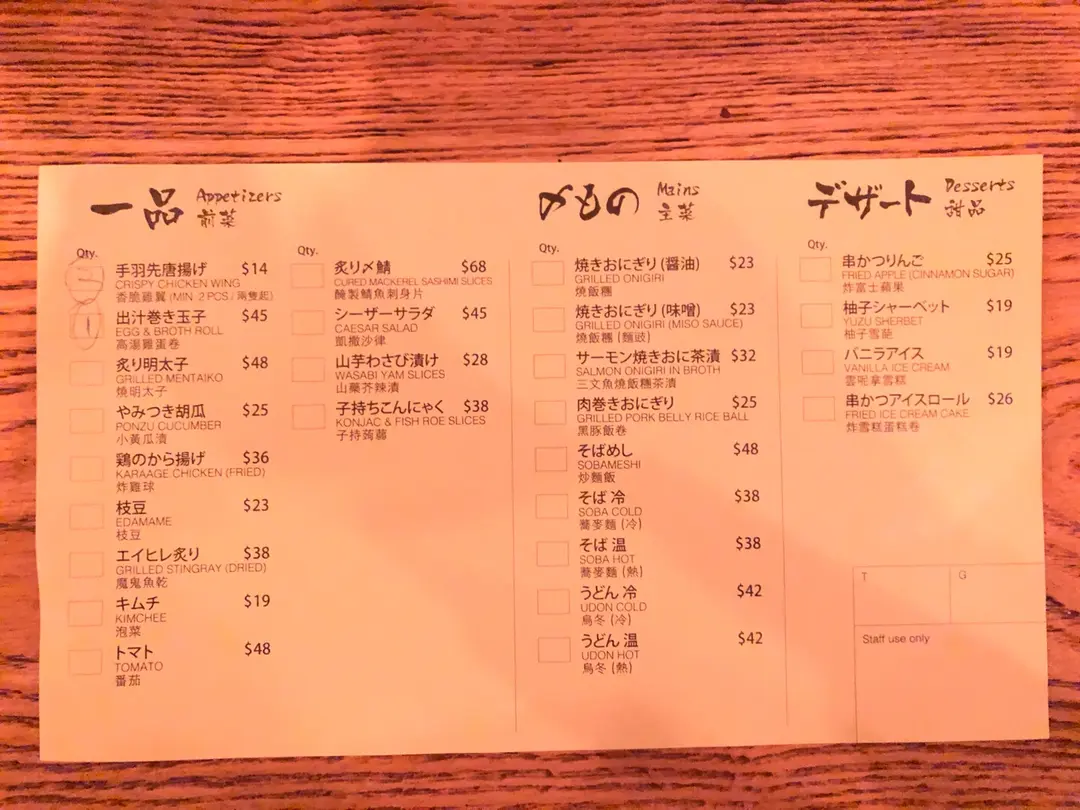 一品 Appetizers
前菜
Qty.
手羽先唐揚げ $14
CRISPY CHICKEN WING
香脆雞翼 (MIN. 2 PCS / 兩隻起)
1 出汁巻き玉子 $45
EGG & BROTH ROLL
高湯雞蛋卷
炙り明太子 $48
GRILLED MENTAIKO
燒明太子
やみつき胡瓜 $25
PONZU CUCUMBER
小黃瓜漬
鶏のから揚げ $36
KARAAGE CHICKEN (FRIED)
炸雞球
枝豆 $23
EDAMAME
枝豆
エイヒレ炙り $38
GRILLED STINGRAY (DRIED)
魔鬼魚乾
キムチ $19
KIMCHEE
泡菜
トマト $48
TOMATO
番茄
Qty.
炙り〆鯖 $68
CURED MACKEREL SASHIMI SLICES
醃製鯖魚刺身片
シーザーサラダ $45
CAESAR SALAD
凱撒沙律
山芋わさび漬け $28
WASABI YAM SLICES
山藥芥辣漬
子持ちこんにゃく $38
KONJAC & FISH ROE SLICES
子持蒟蒻
〆もの Mains
主菜
Qty.
焼きおにぎり (醤油) $23
GRILLED ONIGIRI
燒飯糰
焼きおにぎり (味噌) $23
GRILLED ONIGIRI (MISO SAUCE)
燒飯糰 (麵豉)
サーモン焼きおに茶漬 $32
SALMON ONIGIRI IN BROTH
三文魚燒飯糰茶漬
肉巻きおにぎり $25
GRILLED PORK BELLY RICE BALL
黑豚飯卷
そばめし $48
SOBAMESHI
炒麵飯
そば 冷 $38
SOBA COLD
蕎麥麵 (冷)
そば 温 $38
SOBA HOT
蕎麥麵 (熱)
うどん 冷 $42
UDON COLD
烏冬 (冷)
うどん 温 $42
UDON HOT
烏冬 (熱)
デザート Desserts
甜品
Qty.
串かつりんご $25
FRIED APPLE (CINNAMON SUGAR)
炸富士蘋果
柚子シャーベット $19
YUZU SHERBET
柚子雪葩
バニラアイス $19
VANILLA ICE CREAM
雲呢拿雪糕
串かつアイスロール $26
FRIED ICE CREAM CAKE
炸雪糕蛋糕卷
T G
Staff use only